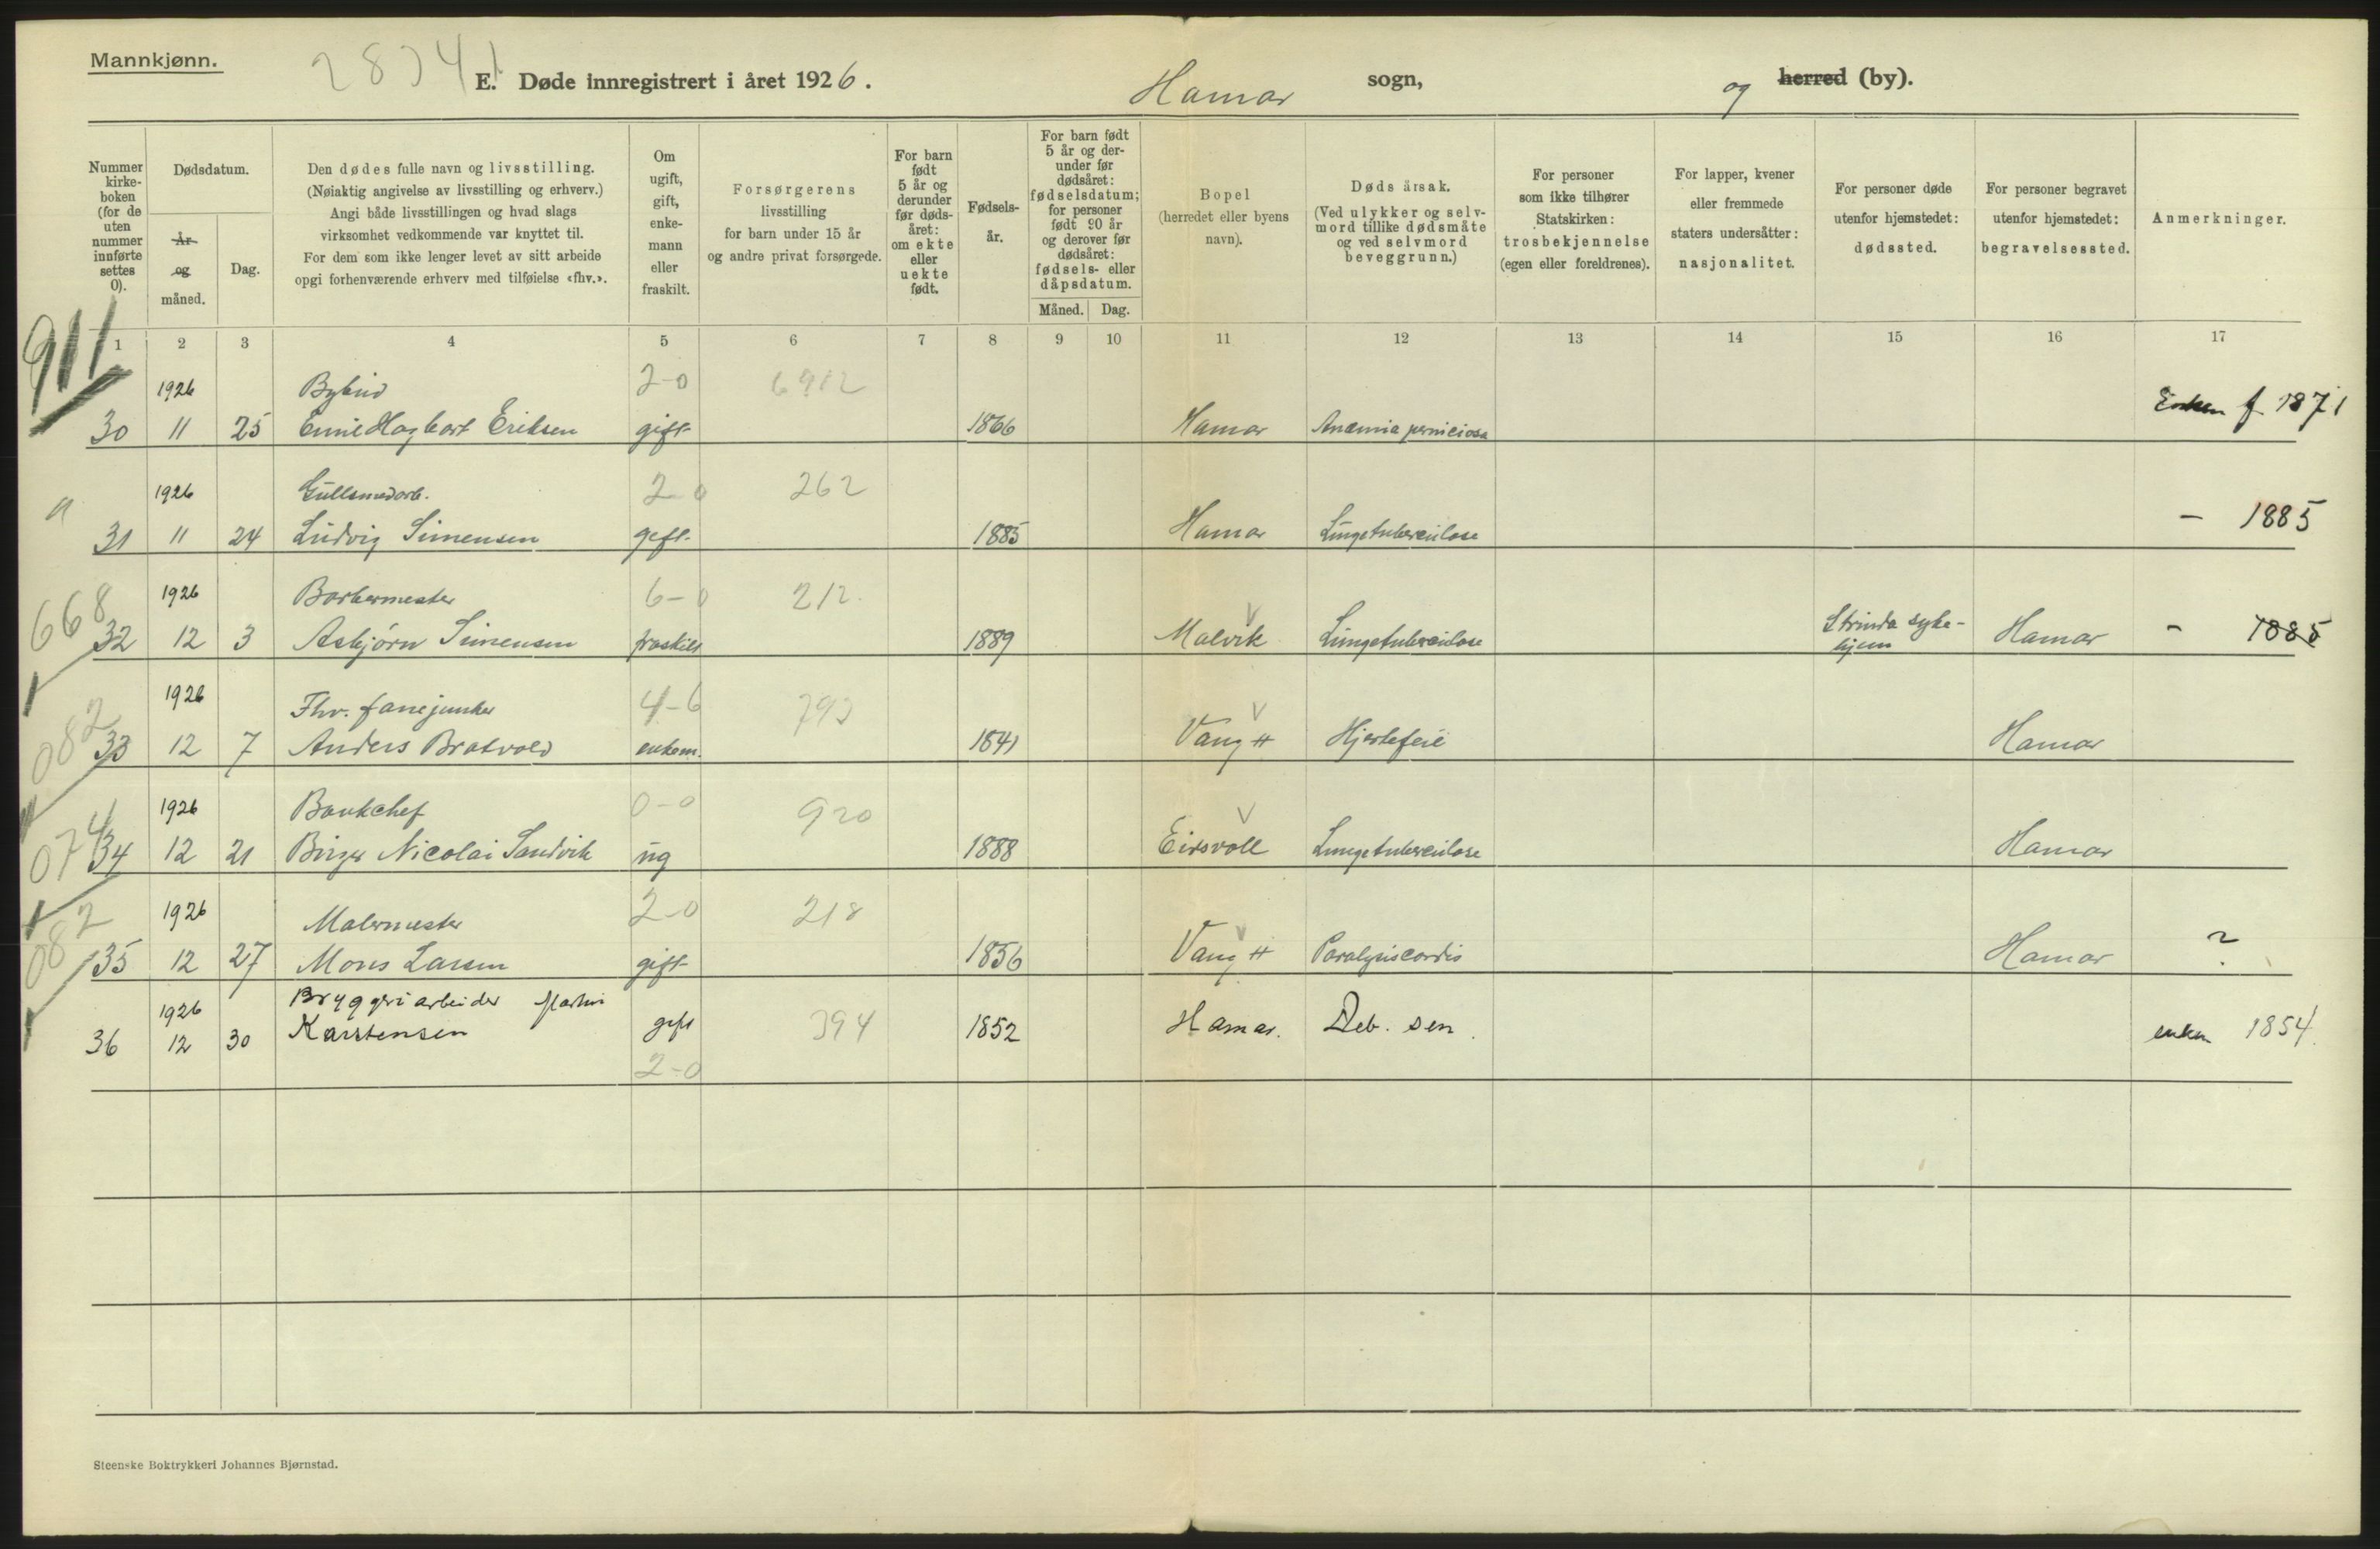 Mannkjønn.
E. Døde innregistrert i året 1926.
Hamar sogn, og herred (by).
Nummer kirke- boken (for de uten nummer innførte settes 0).
Dødsdatum.
År og måned.
Dag.
Den dødes fulle navn og livsstilling.
(Nøiaktig angivelse av livsstilling og erhverv.)
Angi både livsstillingen og hvad slags
virksomhet vedkommende var knyttet til.
For dem som ikke lenger levet av sitt arbeide
opgi forhenværende erhverv med tilføielse «fhv.».
Om ugift, gift, enke- mann eller fraskilt.
Forsørgerens
livsstilling
for barn under 15 år
og andre privat forsørgede.
For barn født 5 år og derunder før døds- året: om ekte eller uekte født.
Fødsels- år.
For barn født 5 år og der- under før dødsåret: fødselsdatum; for personer født 90 år og derover før dødsåret: fødsels- eller dåpsdatum.
Måned. Dag.
Bopel
(herredet eller byens
navn).
Døds årsak.
(Ved ulykker og selv-
mord tillike dødsmåte
og ved selvmord
beveggrunn.)
For personer
som ikke tilhører
Statskirken:
trosbekjennelse
(egen eller foreldrenes).
For lapper, kvener
eller fremmede
staters undersåtter:
nasjonalitet.
For personer døde
utenfor hjemstedet:
dødssted.
For personer begravet
utenfor hjemstedet:
begravelsessted.
Anmerkninger.
1 2 3 4 5 6 7 8 9 10 11 12 13 14 15 16 17
911
1926 Bybud 2-0 6912
30 11 25 Emil Hagbart Eriksen gift 1866 Hamar Anæmia perniciosa Enken f. 1871
1926 Gullsmedarb. 2-0 262
31 11 24 Ludvig Simensen gift 1885 Hamar Lungetuberculose - 1885
668
1926 Barbermester 6-0 212.
32 12 3 Asbjørn Simensen fraskilt 1889 Malvik Lungetuberculose Strinda syke- hjem Hamar - 1885
082
1926 Fhv. fanejunker 4-6
33 12 7 Anders Bratvold enkem. 1841 Vang H Hjertefeil Hamar
074
1926 Bankchef 0-0 920
34 12 21 Birger Nicolai Sandvik ug 1888 Eidsvoll Lungetuberculose Hamar
082
1926 Malermester 2-0 218
35 12 27 Mons Larsen gift 1856 Vang H Paralysis cordis Hamar ?
1926 Bryggeriarbeider Martin
36 12 30 Karstensen gift 394 1852 Hamar. Deb. sen. enken 1854
2-0
Steenske Boktrykkeri Johannes Bjørnstad.